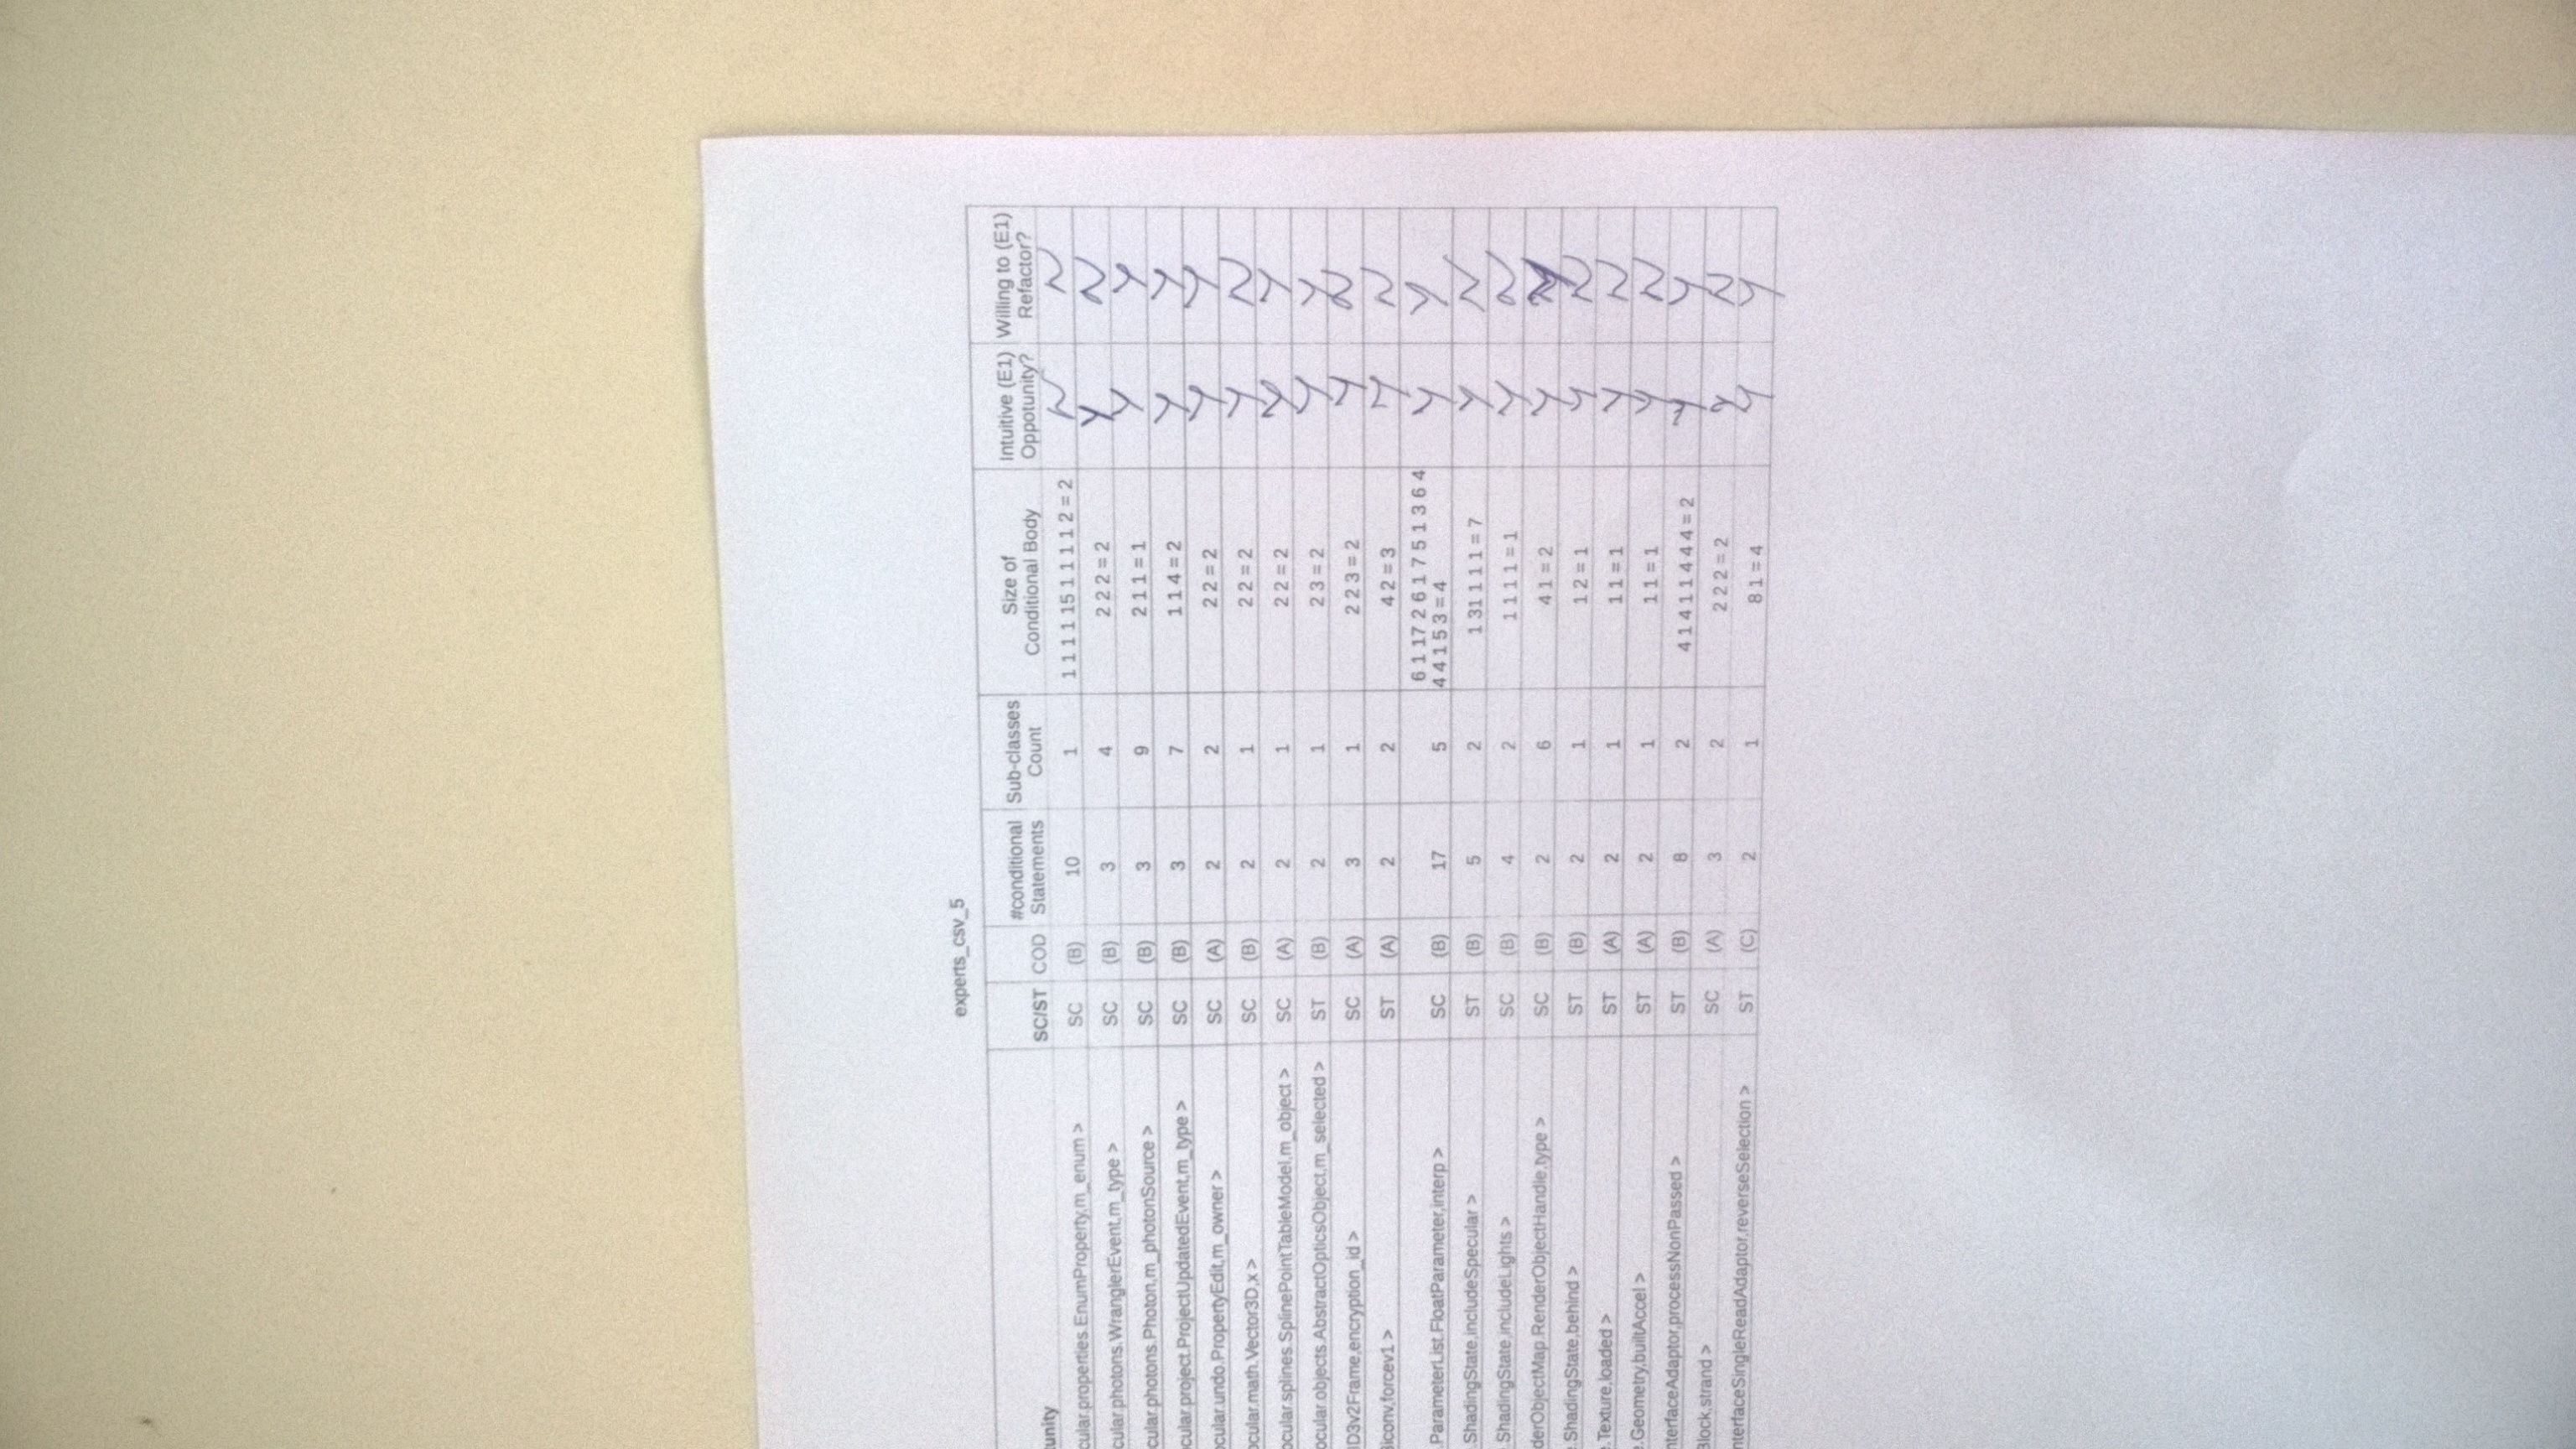 experts_csv_5
unity SC/ST COD #conditional Statements Sub-classes Count Size of Conditional Body Intuitive (E1) Oppotunity? Willing to (E1) Refactor?
cular.properties.EnumProperty,m_enum > SC (B) 10 1 1 1 1 1 15 1 1 1 1 2 = 2 N N
cular.photons.WranglerEvent,m_type > SC (B) 3 4 2 2 2 = 2 Y N
cular.photons.Photon,m_photonSource > SC (B) 3 9 2 1 1 = 1 Y Y
cular.project.ProjectUpdatedEvent,m_type > SC (B) 3 7 1 1 4 = 2 Y Y
cular.undo.PropertyEdit,m_owner > SC (A) 2 2 2 2 = 2 Y Y
ocular.math.Vector3D,x > SC (B) 2 1 2 2 = 2 Y N
ocular.splines.SplinePointTableModel,m_object > SC (A) 2 1 2 2 = 2 Y
ocular.objects.AbstractOpticsObject,m_selected > ST (B) 2 1 2 3 = 2 Y Y
ID3v2Frame,encryption_id > SC (A) 3 1 2 2 3 = 2 Y N
Biconv,forcev1 > ST (A) 2 2 4 2 = 3 Y N
.ParameterList.FloatParameter,interp > SC (B) 17 5 6 1 17 2 6 1 7 5 1 3 6 4 4 4 1 5 3 = 4 Y Y
.ShadingState,includeSpecular > ST (B) 5 2 1 31 1 1 1 = 7 Y N
.ShadingState,includeLights > SC (B) 4 2 1 1 1 1 = 1 Y N
derObjectMap.RenderObjectHandle,type > SC (B) 2 6 4 1 = 2 Y
.ShadingState,behind > ST (B) 2 1 1 2 = 1 Y N
.Texture,loaded > ST (A) 2 1 1 1 = 1 Y N
.Geometry,builtAccel > ST (A) 2 1 1 1 = 1 Y N
nterfaceAdaptor,processNonPassed > ST (B) 8 2 4 1 4 1 1 4 4 4 = 2 Y Y
Block,strand > SC (A) 3 2 2 2 2 = 2 N
nterfaceSingleReadAdaptor,reverseSelection > ST (C) 2 1 8 1 = 4 Y Y